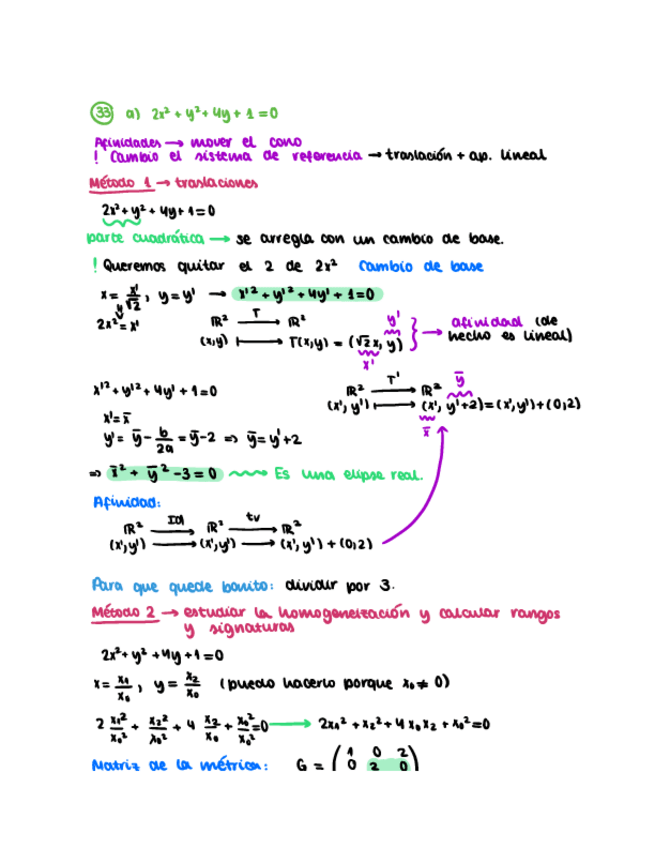 33 a) 2x² + y² + 4y + 1 = 0
Afinidades → mover el cono
! Cambio el sistema de referencia → traslación + ap. lineal
Método 1 → traslaciones
2x² + y² + 4y + 1 = 0
parte cuadrática → se arregla con un cambio de base.
! Queremos quitar el 2 de 2x² Cambio de base
x = x'/√2, y = y' → x'² + y'² + 4y' + 1 = 0
y
2x² = x'
ℝ² —T→ ℝ² y'
(x,y) ↦ T(x,y) = (√2x, y) } → afinidad (de
hecho es lineal)
x'
x'² + y'² + 4y' + 1 = 0
ℝ² —T'→ ℝ² ȳ
(x', y') ↦ (x', y'+2) = (x', y') + (0,2)
x̄
x' = x̄
y' = ȳ - b/2a = ȳ - 2 ⇒ ȳ = y' + 2
⇒ x̄² + ȳ² - 3 = 0 Es una elipse real.
Afinidad:
ℝ² —Id→ ℝ² —tv→ ℝ²
(x', y') → (x', y') → (x', y') + (0,2)
Para que quede bonito: dividir por 3.
Método 2 → estudiar la homogeneización y calcular rangos
y signaturas
2x² + y² + 4y + 1 = 0
x = x₁/x₀, y = x₂/x₀ (puedo hacerlo porque x₀ ≠ 0)
2 x₁²/x₀² + x₂²/x₀² + 4 x₂/x₀ + x₀²/x₀² = 0 → 2x₁² + x₂² + 4x₀x₂ + x₀² = 0
Matriz de la métrica: G = ( 1 0 2
0 2 0 )